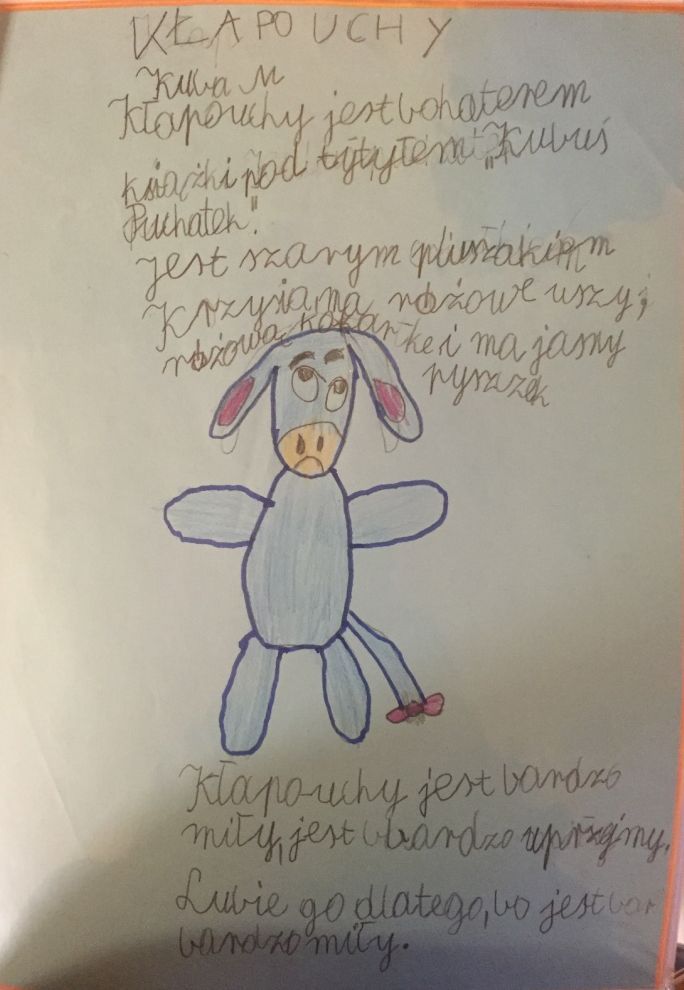 KŁAPOUCHY
Kuba M
Kłapouchy jest bohaterem
książki pod tytyłem "Kubuś
Puchatek".
jest szarym pluszakiem
Krzysia, ma różowe uszy,
różową kokardkę i ma jasny
pyszczek
Kłapouchy jest bardzo
miły, jest bardzo uprzejmy.
Lubie go dlatego, bo jest bar
bardzo miły.